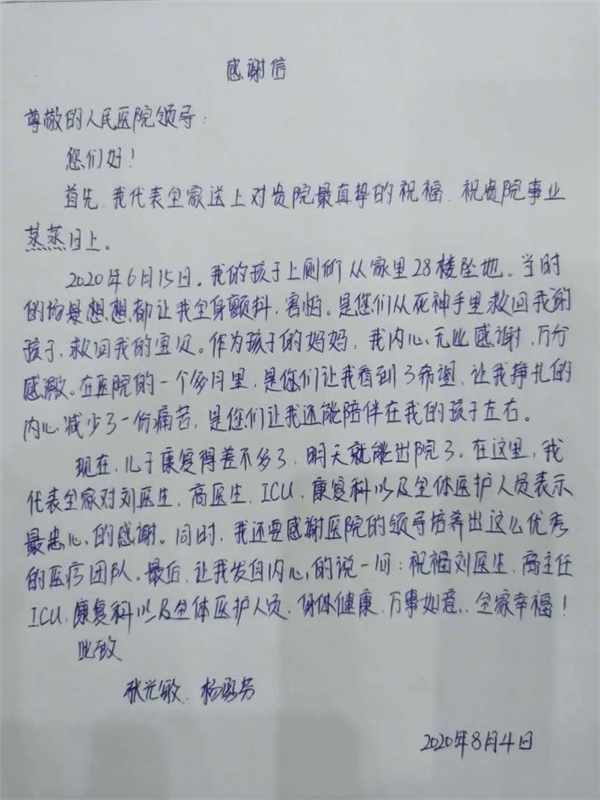 感谢信
尊敬的人民医院领导:
您们好!
首先,我代表全家送上对贵院最真挚的祝福,祝贵院事业
蒸蒸日上。
2020年6月15日,我的孩子上厕所从家里28楼坠地。当时
的场景想想都让我全身颤抖,害怕。是您们从死神手里救回我的
孩子,救回我的宝贝。作为孩子的妈妈,我内心无比感谢,万分
感激。在医院的一个多月里,是您们让我看到了希望,让我挣扎的
内心减少了一份痛苦,是您们让我还能陪伴在我的孩子左右。
现在,儿子康复得差不多了,明天就能出院了。在这里,我
代表全家对刘医生,高医生,ICU,康复科以及全体医护人员表示
最忠心的感谢。同时,我还要感谢医院的领导培养出这么优秀
的医疗团队。最后,让我发自内心的说一句:祝福刘医生,高主任
ICU,康复科以及全体医护人员,身体健康,万事如意,全家幸福!
此致
张光敏
2020年8月4日